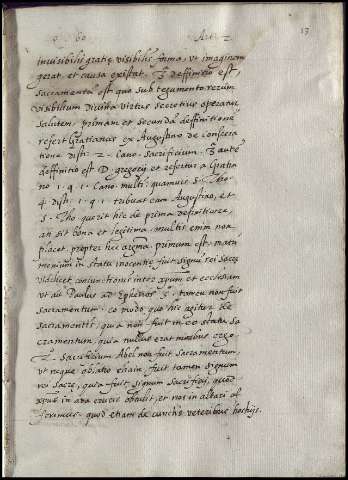 q. 60 Art. 2 13
invisibilis gratię visibilis forma, ut imaginem
gerat et causa existat. 3ª deffinitio est,
sacramenta est quo sub tegumento rerum
visibilium Divina virtus secretius operatur
salutem, primam et secundam deffinitione
refert Gratianus ex Augustino de consecra
tione dist. 2. Cano. sacrificium. 3ª autẽ
deffinitio est D. gregorij et refertur a Gratia
no 1. q. 1. Cano. multi. quamvis S. Tho.
4 dist. 1. q. 1 tribuat eam Augustino, et
S. Tho querit hic de prima definitione,
an sit bona et legitima. multis enim non
placet, propter hęc argumᵃ. primum est, matri
monium in statu inocentię fuit signũ rei sacrę
videlicet coniunctionis inter xpum et ecclesiam
ut ait Paulus ad Ephesios 5. tamen non fuit
sacramentum eo modo quo hic agitur de
sacramentis, quia non fuit in eo statu sa
cramentum, quia nullus erat
2. sacrificium Abel non fuit sacramentum,
ut neque oblatio cuiusdam, fuit tamen signum
rei sacrę, quia fuit signum sacrificij, quod
xpus in ara crucis obtulit, et nos in altari
offerimus. quod etiam de cunctis veteribus hostijs.